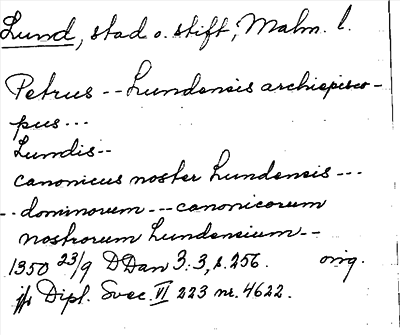 Lund, stad o. stift, Malm. l.
Petrus -- Lundensis archiepisco-
pus...
Lundis--
canonicus noster Lundensis---
-- dominorum --- canonicorum
nostrorum Lundensium --
1350 23/9 DDan 3:3, s. 256. orig.
jfr Dipl. Svec. VI 223 nr. 4622.